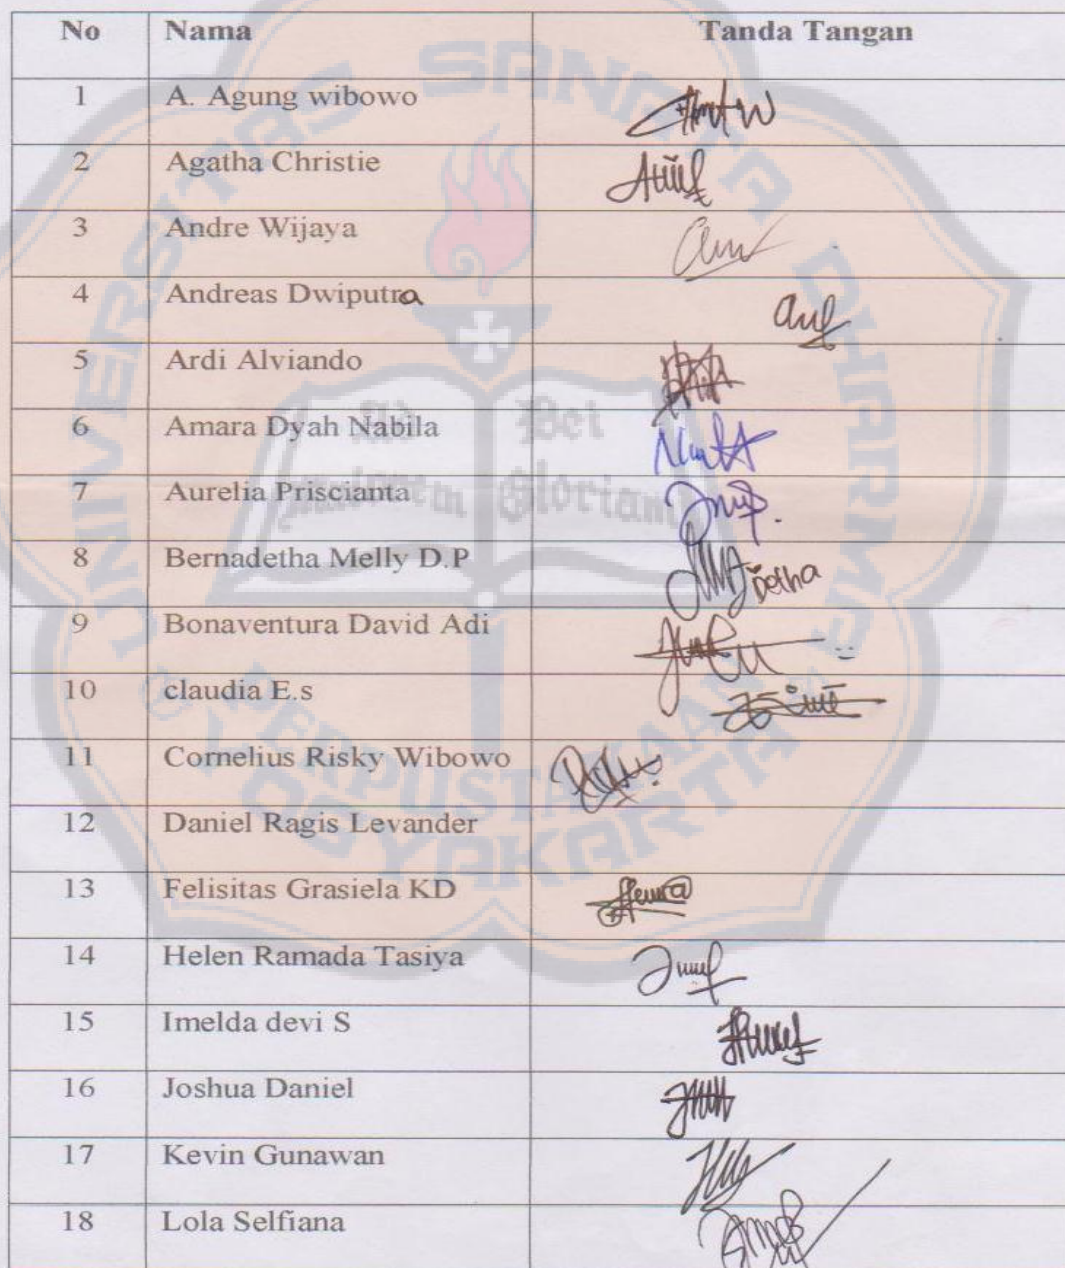 No Nama Tanda Tangan
1 A. Agung wibowo
2 Agatha Christie
3 Andre Wijaya
4 Andreas Dwiputra
5 Ardi Alviando
6 Amara Dyah Nabila
7 Aurelia Priscianta
8 Bernadetha Melly D.P
Detha
9 Bonaventura David Adi
10 claudia E.s
11 Cornelius Risky Wibowo
12 Daniel Ragis Levander
13 Felisitas Grasiela KD
14 Helen Ramada Tasiya
15 Imelda devi S
16 Joshua Daniel
17 Kevin Gunawan
18 Lola Selfiana
UNIVERSITAS SANATA DHARMA
Ad Maiorem Dei Gloriam
PERPUSTAKAAN
YOGYAKARTA